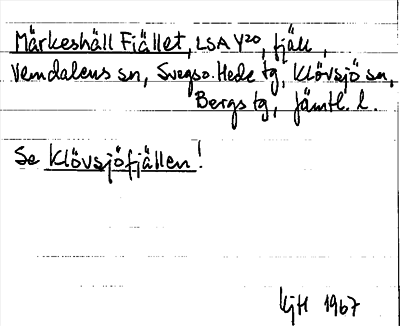 Märkeshäll Fiället, LSA Y20, fjäll,
Vemdalens sn, Svegs o. Hede tg, Klövsjö sn,
Bergs tg, Jämtl. l.
Se Klövsjöfjällen!
KjH 1967